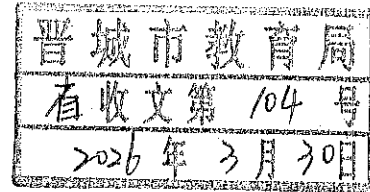 晋城市教育局
省收文第104号
2026年3月30日